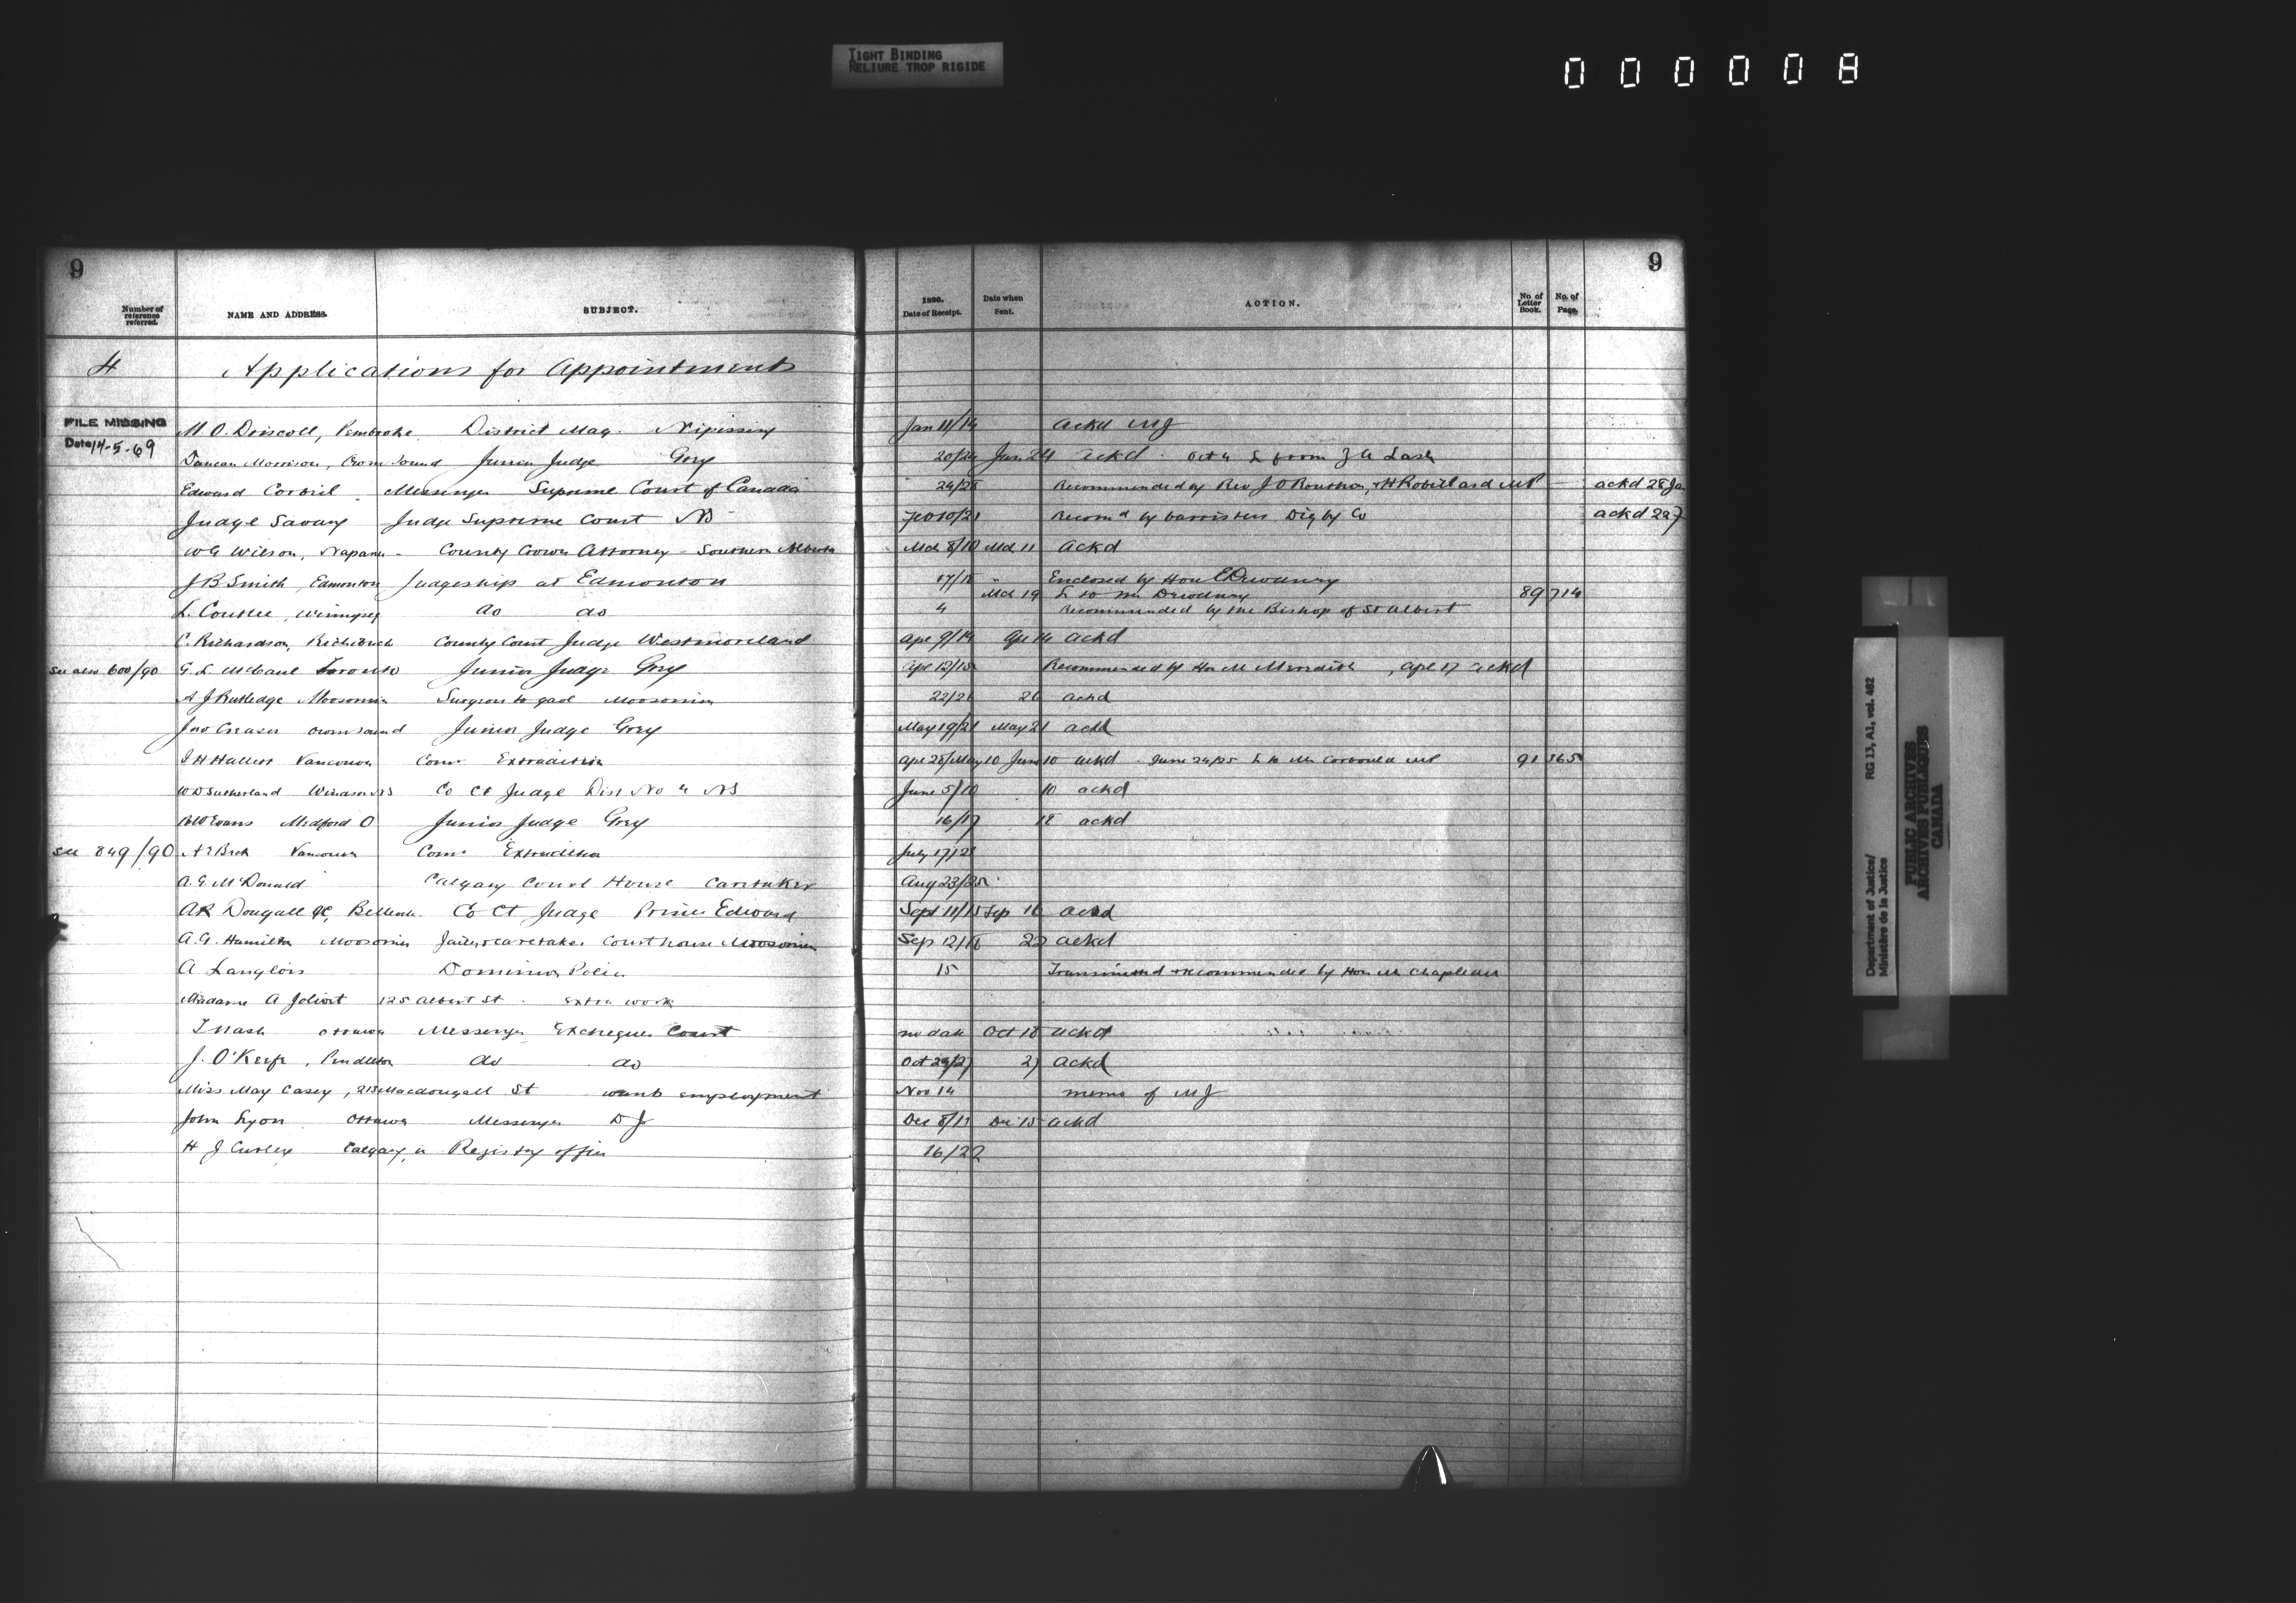 TIGHT BINDING
RELIURE TROP RIGIDE
000008
9
9
Number of reference referred.
NAME AND ADDRESS.
SUBJECT.
1890.
Date of Receipt.
Date when Sent.
ACTION.
No. of Letter Book.
No. of Page.
4 Applications for Appointment
FILE MISSING
Date 14-5-69
M. O. Driscoll, Pembroke District Mag. Nipissing Jan 11/14 ackd MJ
Duncan Morrison, Owen Sound Junior Judge Grey 20/24 Jan 24 ackd Oct 4 L from Z A Lash
Edward Corbiel Messenger Supreme Court of Canada 24/28 Recommended by Rev J O Routhier, + H Robillard MP ackd 28 Ja
Judge Savary Judge Supreme Court NS Feb 10/21 Recomd by barristers Digby Co ackd
W G Wilson, Napanee County Crown Attorney - Southern Alberta Mch 8/10 Mch 11 ackd
J B Smith, Edmonton Judgeship at Edmonton 17/18 " Enclosed by Hon E Dewdney
Mch 19 L to Mr Dewdney 89 714
L. Coutlee, Winnipeg do do 4 Recommended by the Bishop of St Albert
C. Richardson, Richibucto County Court Judge Westmoreland Apl 9/14 Apl 14 ackd
See also 600/90 G. L. McCaul Toronto Junior Judge Grey Apl 12/15 Recommended by Hon Mr Meredith, Apl 17 ackd
A J Rutledge Moosomin Surgeon to gaol Moosomin 22/26 26 ackd
Jno Creasor Owen Sound Junior Judge Grey May 19/21 May 21 ackd
J H Hallett Vancouver Comr Extradition Apl 28/May 10 June 10 ackd - June 24/25 L to Mr Corbould MP 91 565
W D Sutherland Windsor NS Co Ct Judge Dist No 4 NS June 5/10 10 ackd
Evans Medford O Junior Judge Grey 16/17 18 ackd
See 849/90 A E Beck Vancouver Comr Extradition July 17/28
A. G. McDonald Calgary Court House Caretaker Aug 23/25
A R Dougall QC, Belleville Co Ct Judge Prince Edward Sept 11/15 Sep 16 ackd
A. G. Hamilton Moosomin Jailer + caretaker Courthouse Moosomin Sep 12/18 22 ackd
A Langlois Dominion Police 15 Transmitted + recommended by Hon Mr Chapleau
Madame A Jolivet 125 Albert St - extra work
T Nash Ottawa Messenger Exchequer Court no date Oct 18 ackd
J. O'Keefe, Pendleton do do Oct 24/27 27 ackd
Miss May Casey, 213 Macdougall St wants employment Nov 14 memo of MJ
John Lyon Ottawa Messenger D J Dec 8/13 Dec 15 ackd
H J Curley Calgary, in Registry office 16/22
Department of Justice/
Ministère de la Justice
RG 13, A1, vol. 462
PUBLIC ARCHIVES
ARCHIVES PUBLIQUES
CANADA